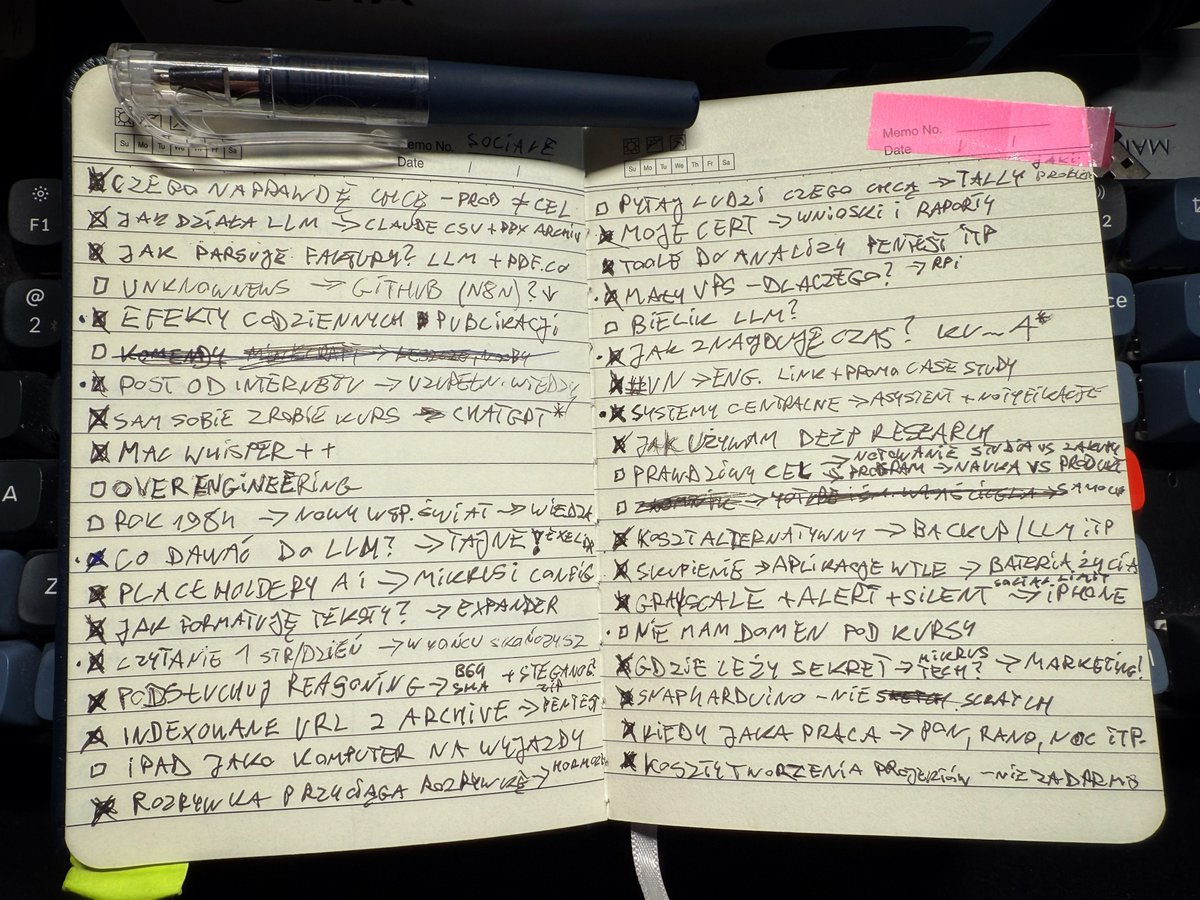 Memo No. SOCIALE
Su Mo Tu We Th Fr Sa
Date / /
CZEGO NAPRAWDĘ CHCĘ - PROD ≠ CEL
JAK DZIAŁA LLM → CLAUDE CSV + PPX ARCHIV
JAK PARSUJĘ FAKTURY? LLM + PDF.CO
UNKNOWNEWS → GITHUB (N8N)? ↓
EFEKTY CODZIENNYCH PUBLIKACJI
KOMENDY
POST OD INTERNETU → UZUPEŁN. WIEDZY
SAM SOBIE ZROBIĘ KURS → CHATGPT*
MAC WHISPER ++
OVERENGINEERING
ROK 1984 → NOWY WSP. ŚWIAT → WIEDZA
CO DAWAĆ DO LLM? → TAJNE
PLACEHOLDERY AI → MIKRUSI CONFIG
JAK FORMATUJĘ TEKSTY? → EXPANDER
CZYTANIE 1 STR/DZIEŃ → W KOŃCU SKOŃCZYSZ
PODSŁUCHUJ REASONING → B64 SHA + STEGANO? ZIP
INDEXOWANE URL Z ARCHIVE → PENTEST
IPAD JAKO KOMPUTER NA WYJAZDY
ROZRYWKA PRZYCIĄGA ROZRYWKĘ → HORMOZI
Memo No.
Su Mo Tu We Th Fr Sa
Date / /
PYTAJ LUDZI CZEGO CHCĄ → TALLY JAKI PROBLEM
MOJE CERT → WNIOSKI I RAPORTY
TOOLE DO ANALIZY PENTEST ITP
MAŁY VPS - DLACZEGO? → RPI
BIELIK LLM?
JAK ZNAJDUJĘ CZAS? 4*
#UN → ENG. LINK + PROMO CASE STUDY
SYSTEMY CENTRALNE → ASYSTENT + NOTYFIKACJE
JAK UŻYWAM DEEP RESEARCH
PRAWDZIWY CEL → NOTOWANIE STUDIA VS ZAKUPY
→ PROGRAM → NAUKA VS PRODUKT
KOSZT ALTERNATYWNY → BACKUP / LLM ITP
SKUPIENIE → APLIKACJE W TLE → BATERIA ŻYCIA
GRAYSCALE + ALERT + SILENT → IPHONE SOCIAL LIMIT
NIE MAM DOMEN POD KURSY
GDZIE LEŻY SEKRET → MIKRUS TECH? → MARKETING!
SNAP4ARDUINO - NIE SCRATCH
KIEDY JAKA PRACA → PON, RANO, NOC ITP.
KOSZTY TWORZENIA PROJEKTÓW - NIE ZA DARMO
F1
@
2
A
Z